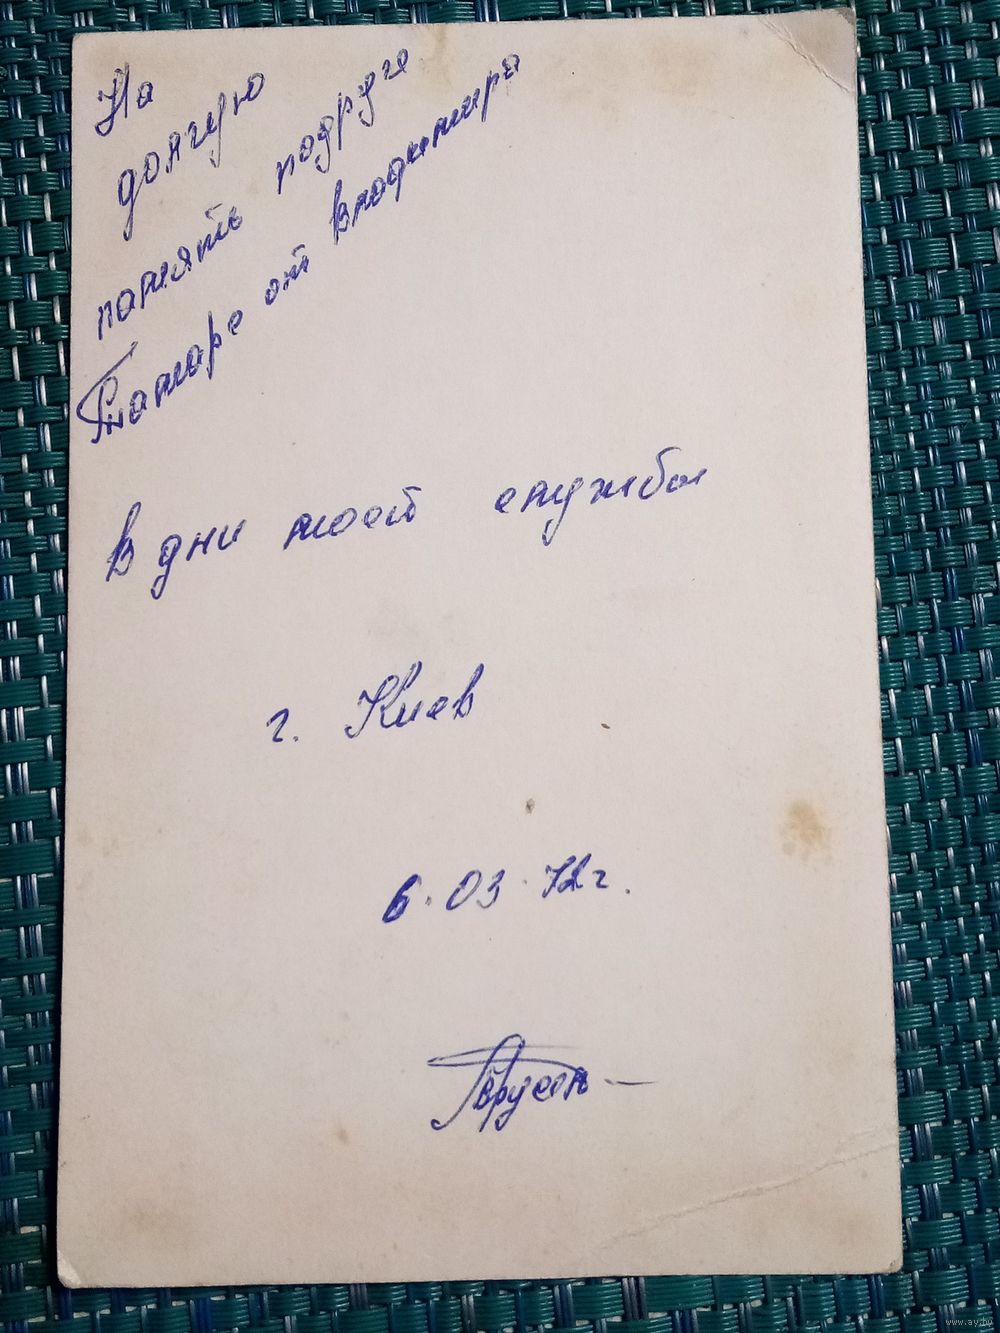 На
долгую
память подруге
Тамаре от Владимира
В дни моей службы
г. Киев
6.03.72г.
www.ay.by